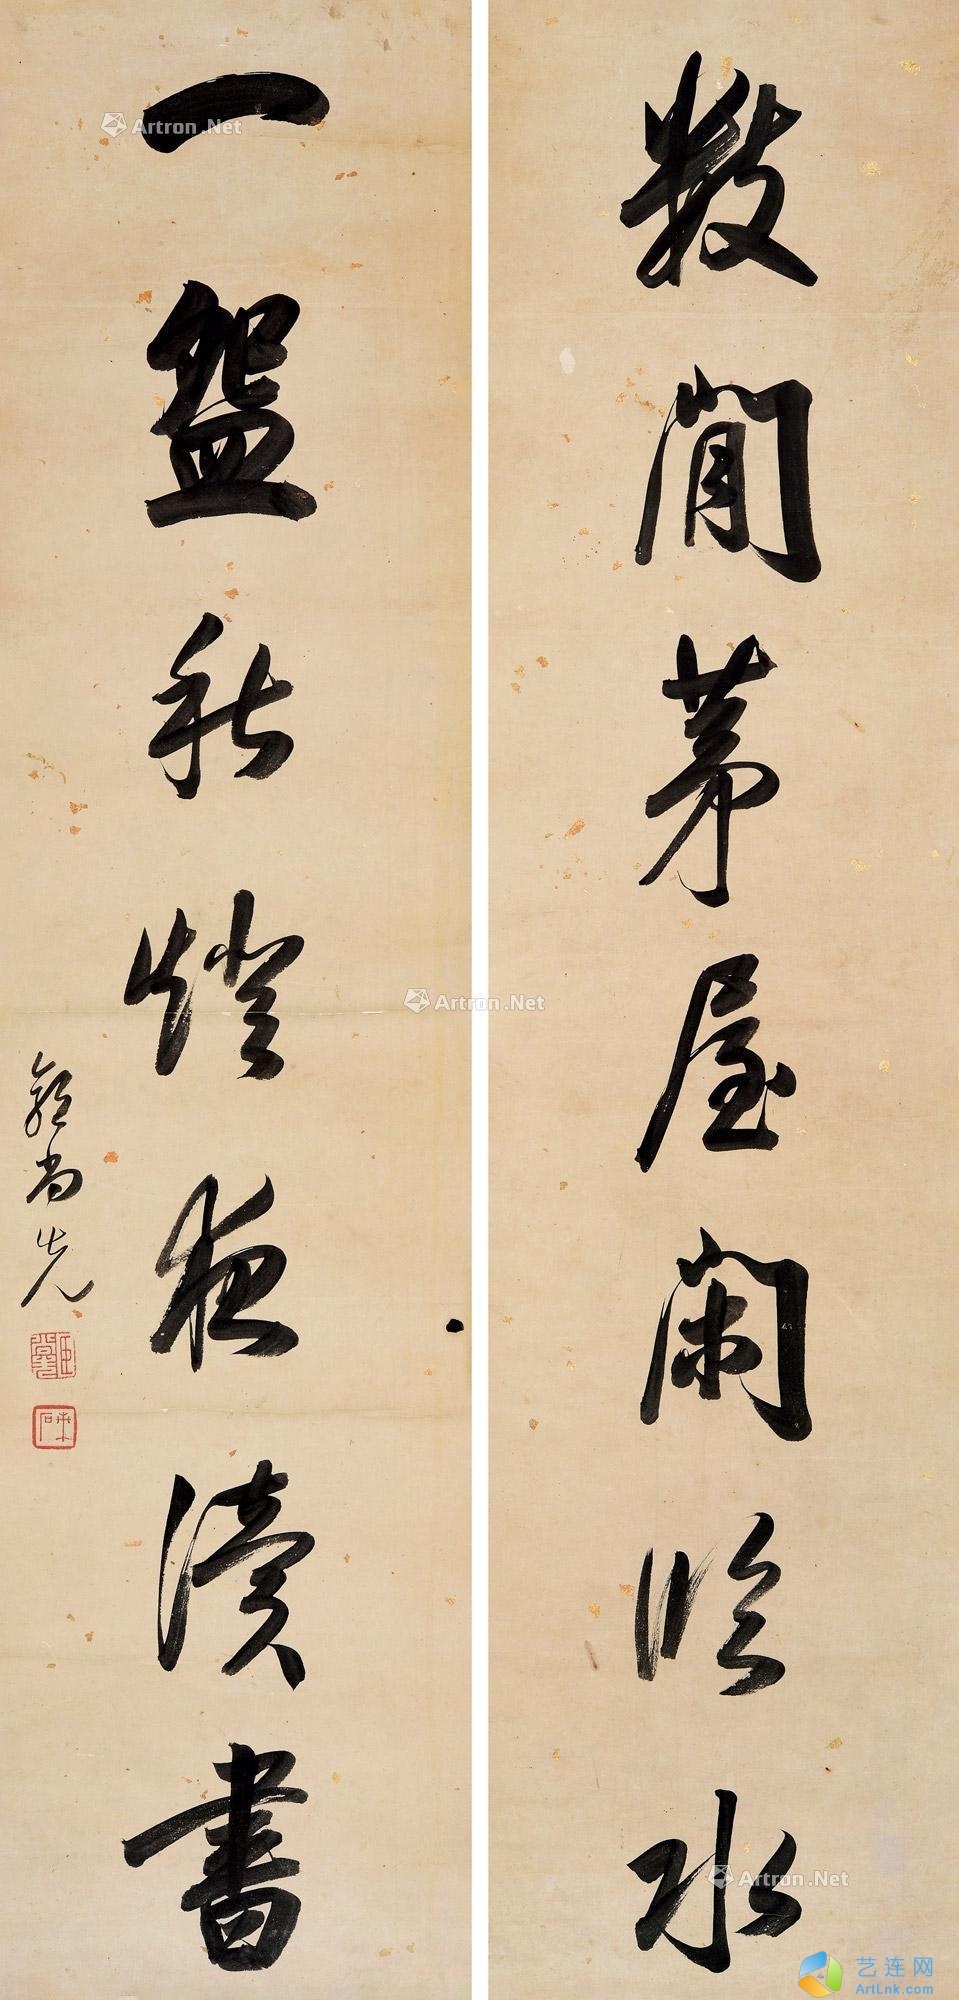 數間茅屋閑臨水
一盌秋燈夜讀書
郭尚先
Artron.Net
Artron.Net
Artron.Net
艺连网
ArtLnk.com